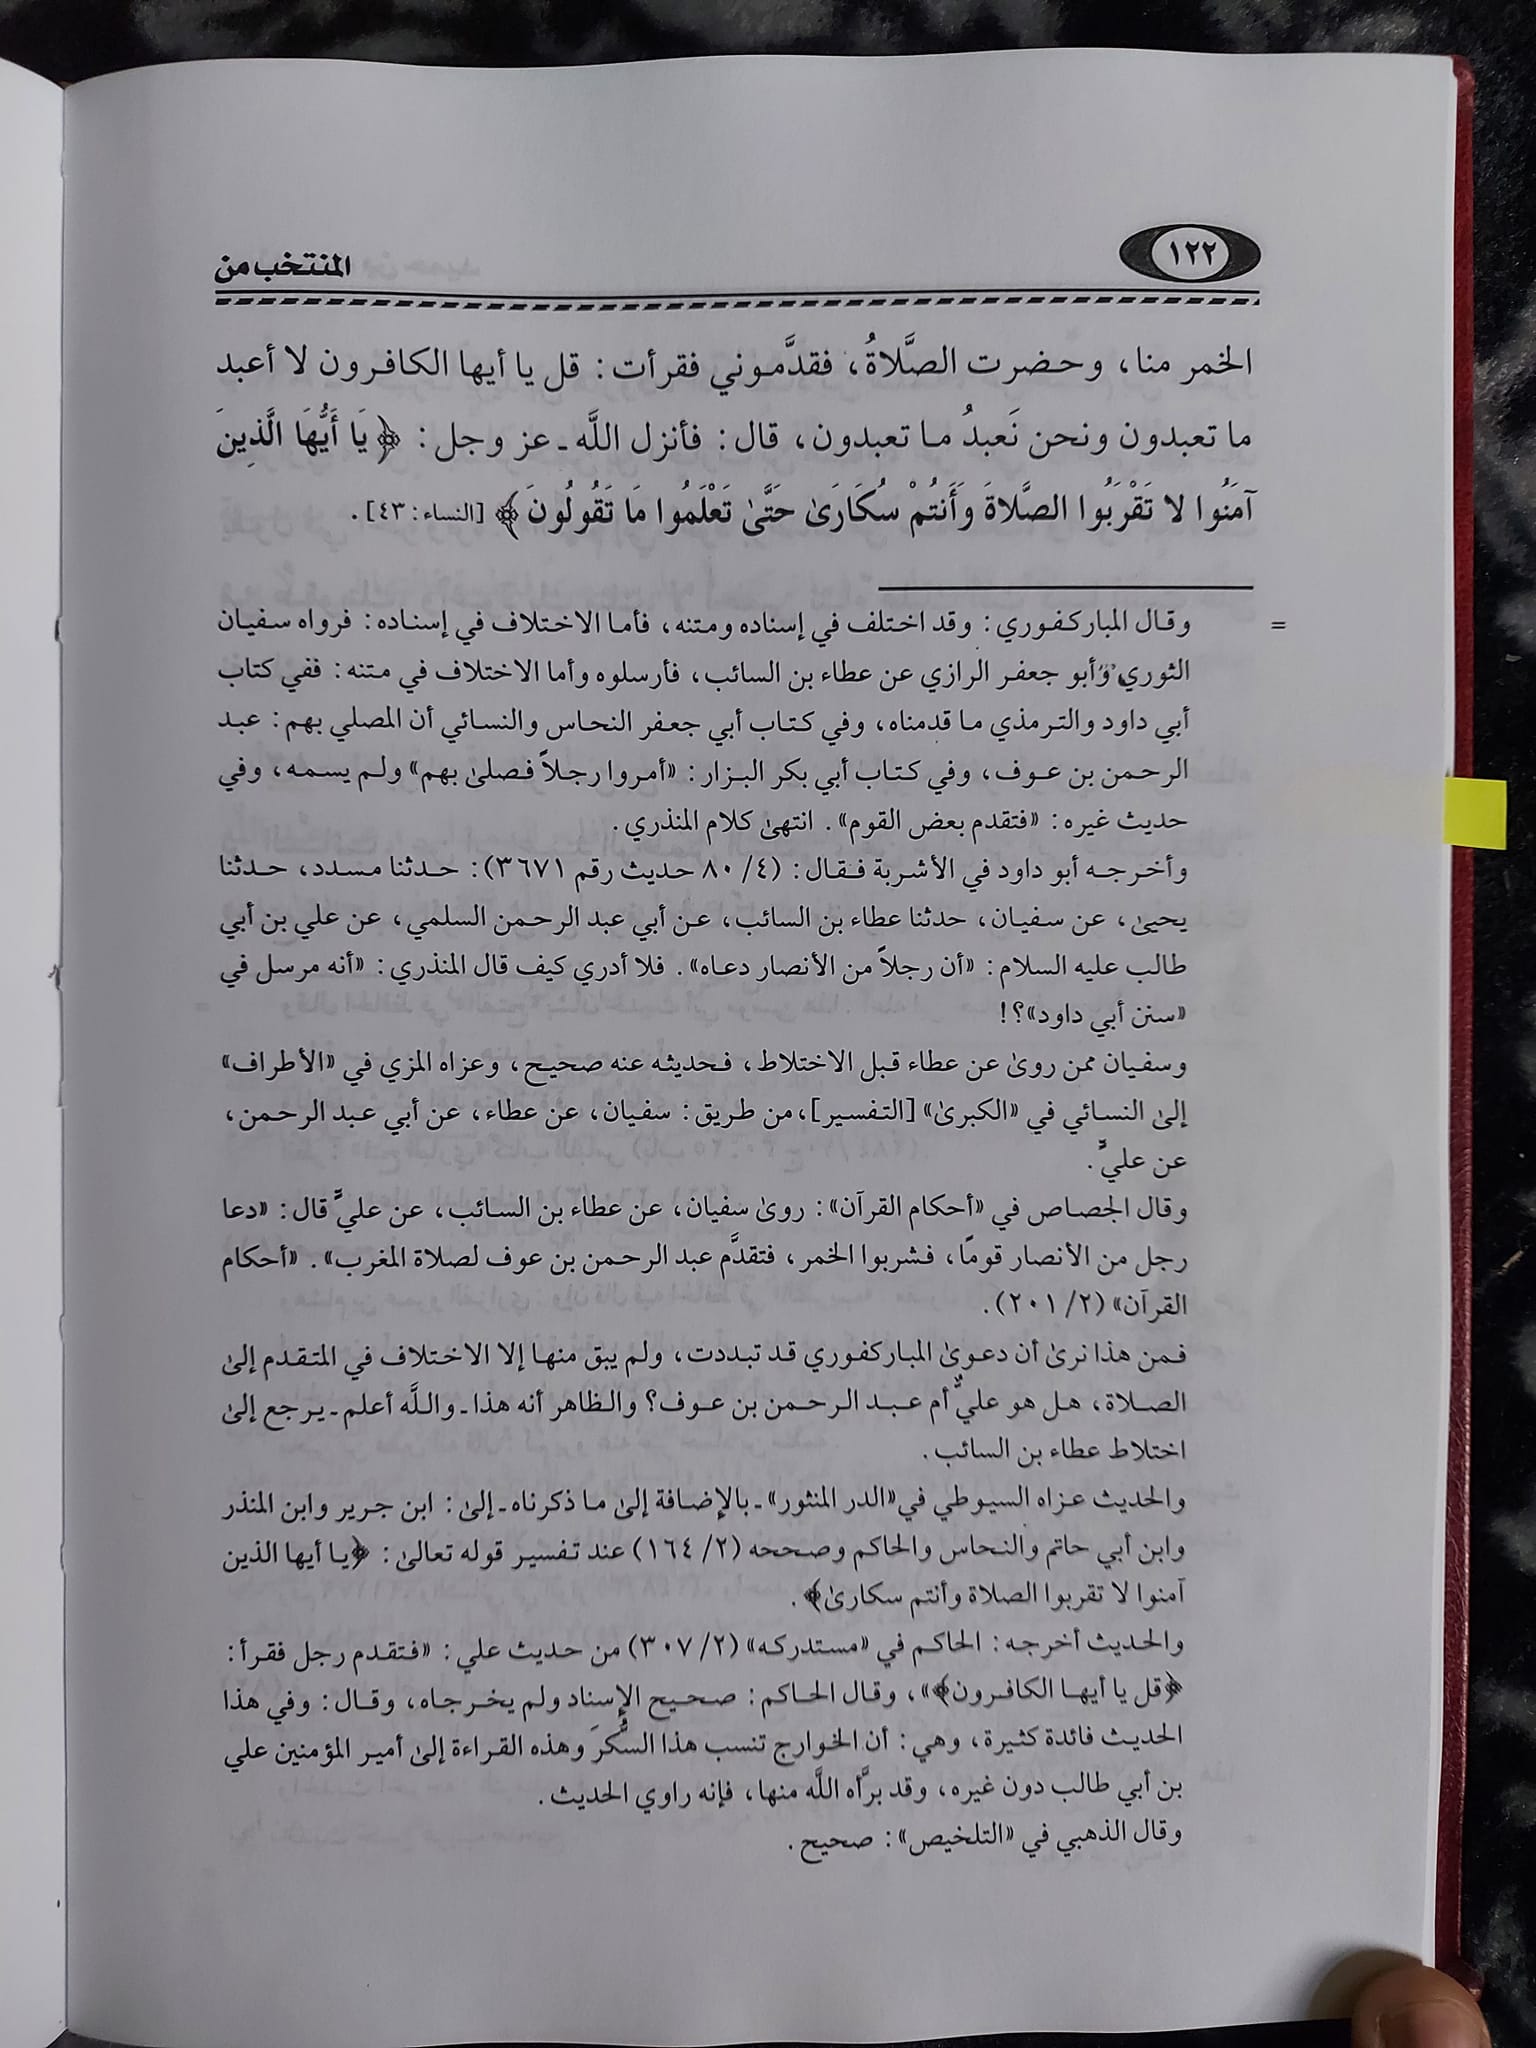 ١٢٢
المنتخب من
الخمر منا، وحضرت الصَّلاةُ، فقدَّموني فقرأت: قل يا أيها الكافرون لا أعبد
ما تعبدون ونحن نَعبدُ ما تعبدون، قال: فأنزل اللَّه ـ عز وجل: ﴿يَا أَيُّهَا الَّذِينَ
آمَنُوا لا تَقْرَبُوا الصَّلاةَ وَأَنتُمْ سُكَارَىٰ حَتَّىٰ تَعْلَمُوا مَا تَقُولُونَ﴾ [النساء: ٤٣].
= وقال المباركفوري: وقد اختلف في إسناده ومتنه، فأما الاختلاف في إسناده: فرواه سفيان
الثوري وأبو جعفر الرازي عن عطاء بن السائب، فأرسلوه وأما الاختلاف في متنه: ففي كتاب
أبي داود والترمذي ما قدمناه، وفي كتاب أبي جعفر النحاس والنسائي أن المصلي بهم: عبد
الرحمن بن عوف، وفي كتاب أبي بكر البزار: «أمروا رجلاً فصلىٰ بهم» ولم يسمه، وفي
حديث غيره: «فتقدم بعض القوم». انتهىٰ كلام المنذري.
وأخرجه أبو داود في الأشربة فقال: (٤/ ٨٠ حديث رقم ٣٦٧١): حدثنا مسدد، حدثنا
يحيىٰ، عن سفيان، حدثنا عطاء بن السائب، عن أبي عبد الرحمن السلمي، عن علي بن أبي
طالب عليه السلام: «أن رجلاً من الأنصار دعاه». فلا أدري كيف قال المنذري: «أنه مرسل في
«سنن أبي داود»؟!
وسفيان ممن روىٰ عن عطاء قبل الاختلاط، فحديثه عنه صحيح، وعزاه المزي في «الأطراف»
إلىٰ النسائي في «الكبرىٰ» [التفسير]، من طريق: سفيان، عن عطاء، عن أبي عبد الرحمن،
عن عليٍّ.
وقال الجصاص في «أحكام القرآن»: روىٰ سفيان، عن عطاء بن السائب، عن عليٍّ قال: «دعا
رجل من الأنصار قومًا، فشربوا الخمر، فتقدَّم عبد الرحمن بن عوف لصلاة المغرب». «أحكام
القرآن» (٢/ ٢٠١).
فمن هذا نرىٰ أن دعوىٰ المباركفوري قد تبددت، ولم يبق منها إلا الاختلاف في المتقدم إلىٰ
الصلاة، هل هو عليٌّ أم عبد الرحمن بن عوف؟ والظاهر أنه هذا ـ واللَّه أعلم ـ يرجع إلىٰ
اختلاط عطاء بن السائب.
والحديث عزاه السيوطي في «الدر المنثور» ـ بالإضافة إلىٰ ما ذكرناه ـ إلىٰ: ابن جرير وابن المنذر
وابن أبي حاتم والنحاس والحاكم وصححه (٢/ ١٦٤) عند تفسير قوله تعالىٰ: ﴿يا أيها الذين
آمنوا لا تقربوا الصلاة وأنتم سكارىٰ﴾.
والحديث أخرجه: الحاكم في «مستدركه» (٢/ ٣٠٧) من حديث علي: «فتقدم رجل فقرأ:
﴿قل يا أيها الكافرون﴾»، وقال الحاكم: صحيح الإسناد ولم يخرجاه، وقال: وفي هذا
الحديث فائدة كثيرة، وهي: أن الخوارج تنسب هذا السُّكرَ وهذه القراءة إلىٰ أمير المؤمنين علي
بن أبي طالب دون غيره، وقد برَّأه اللَّه منها، فإنه راوي الحديث.
وقال الذهبي في «التلخيص»: صحيح.